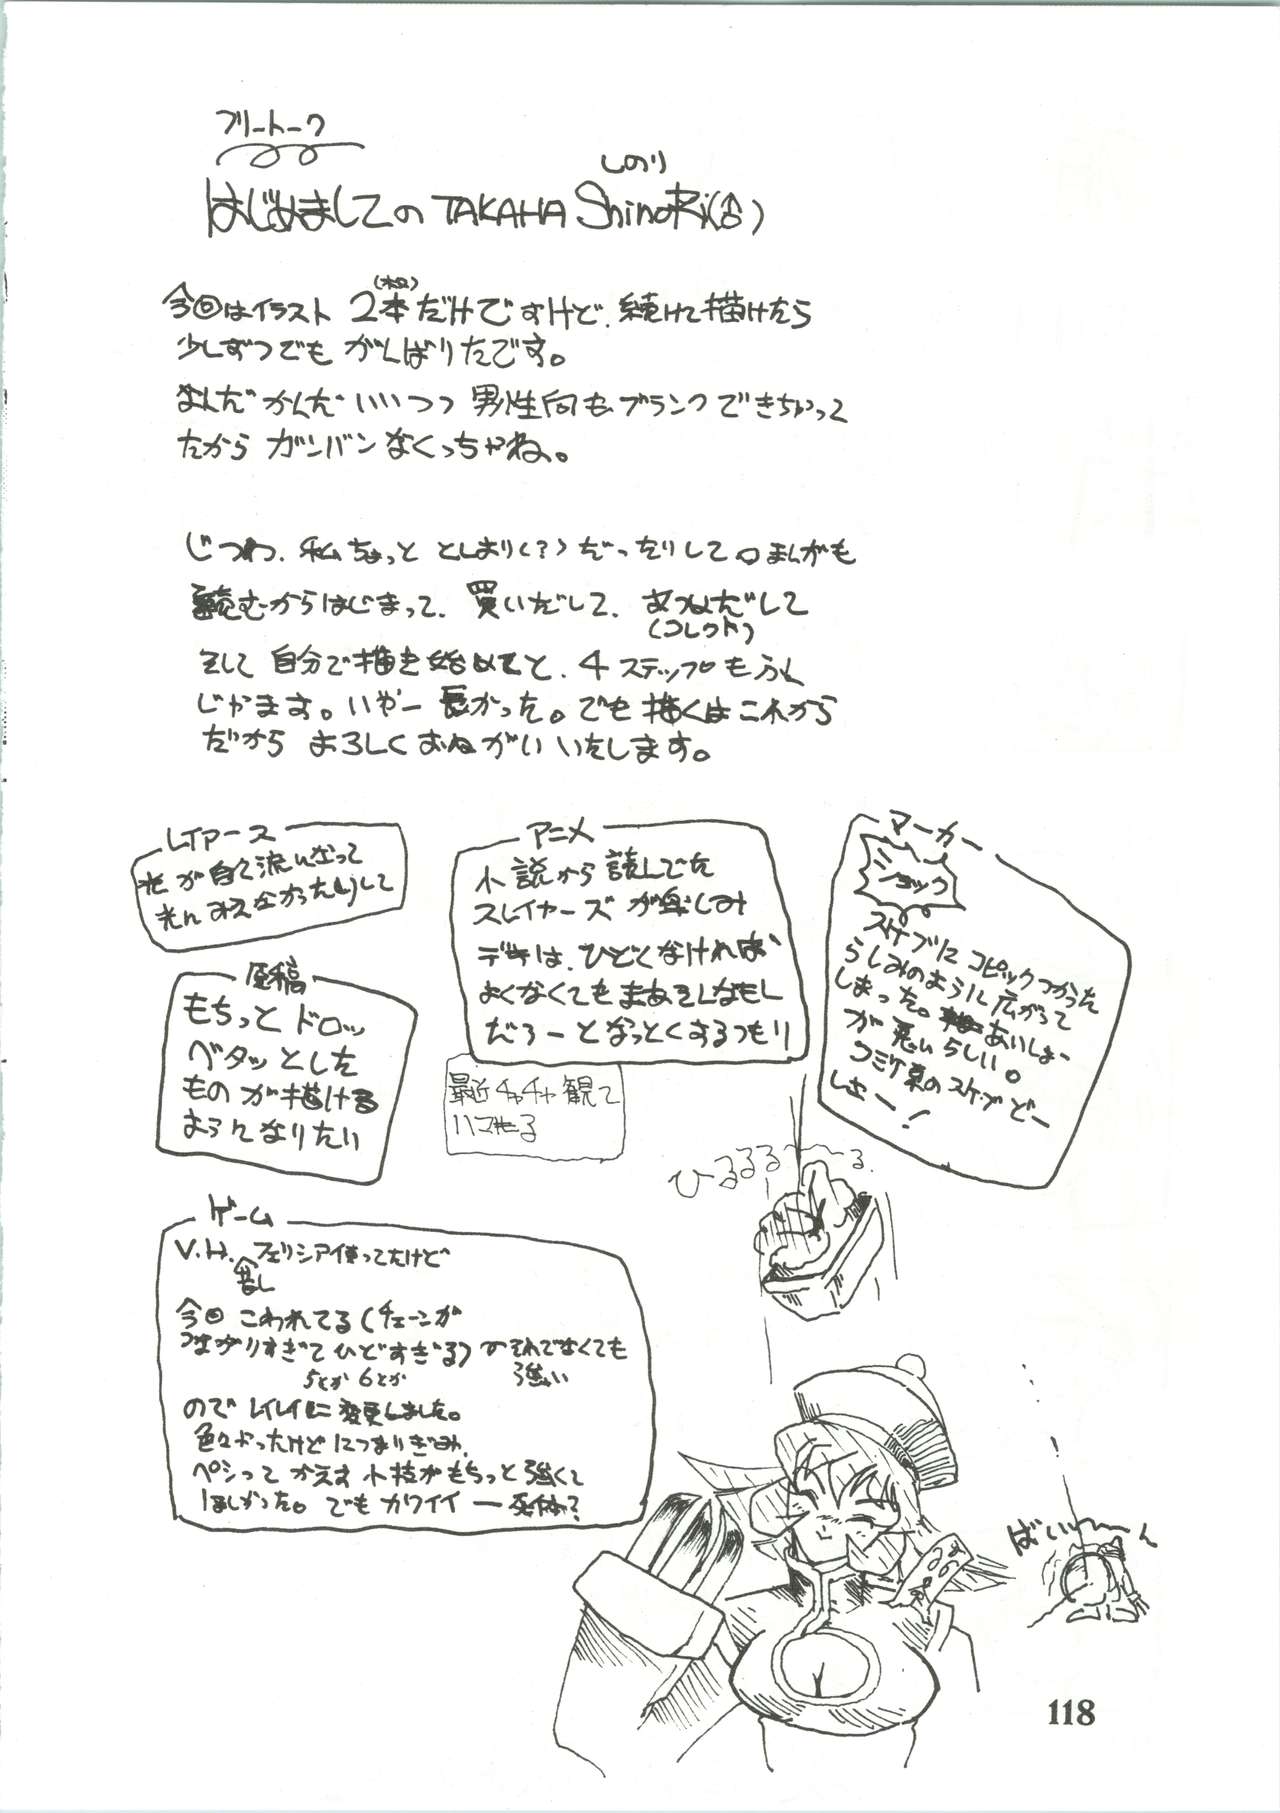 フリートーク
しのり
はじめましての TAKAHA ShinoRi(♂)
今回はイラスト 2本だけですけど、続けて描けたら
少しずつでも がんばりたです。
なんだかんだいいつつ 男性向も ブランクできちゃって
たから ガンバンなくっちゃね。
じつわ、私ちょっと としより(?)だったりして。まんがも
読むからはじまって、買いだして、あつめだして
(コレクト)
そして 自分で描き始めてと、4ステップもふん
じゃます。いやー 長かった。でも 描くはこれから
だから よろしくおねがい いたします。
レイアース
光が白く流になって
光んみえなかったりして
アニメ
小説から読んでた
スレイヤーズが楽しみ
デキは、ひどくなければ
よくなくても まあそんなもん
だろーと なっとくするつもり
マーカー
ショック
スケブに コピックつかった
らしみのように広がって
しまった。あいしょー
が悪いらしい。
コミケ京のスケブどー
しよー!
原稿
もちっと ドロッ
ベタッとした
ものが描ける
ようになりたい
最近チャチャ観て
ハマもる
ひるるる〜〜る
ゲーム
V.H. フェリシア使ってたけど
昔し
今回 こわれてる(チェーンが
つながりすぎて ひどすぎる)のそれでなくても
5とか6とか
強い
ので レイレイに 変更しました。
色々かったけど につまりぎみ、
ペシって かえす 小技がもちっと 強くて
ほしかった。でも カワイイ ー 死体?
ばい〜〜ん
118